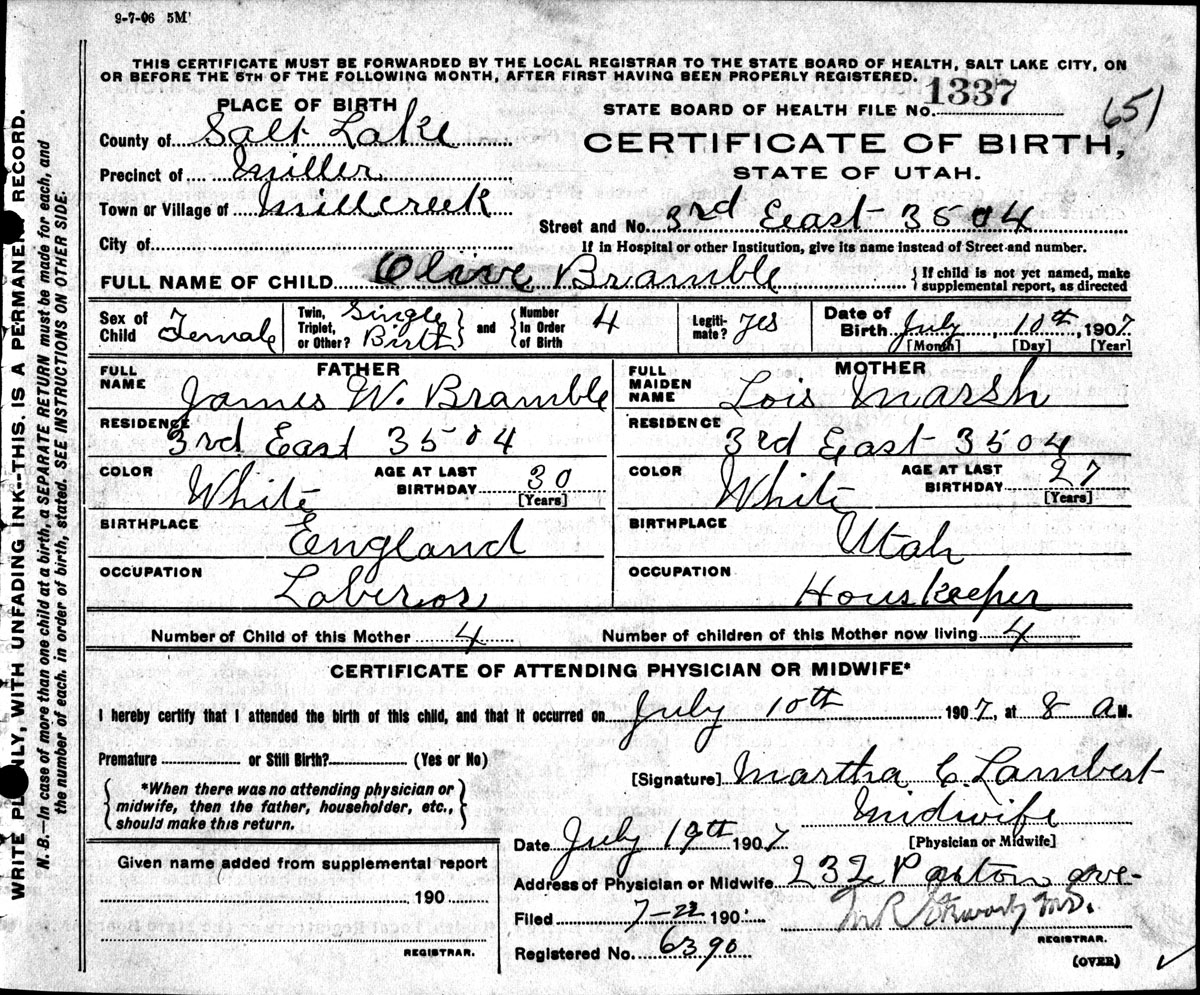 9-7-06 5M
THIS CERTIFICATE MUST BE FORWARDED BY THE LOCAL REGISTRAR TO THE STATE BOARD OF HEALTH, SALT LAKE CITY, ON
OR BEFORE THE 5TH OF THE FOLLOWING MONTH, AFTER FIRST HAVING BEEN PROPERLY REGISTERED.
PLACE OF BIRTH
STATE BOARD OF HEALTH FILE NO. 1337
651
County of Salt Lake
CERTIFICATE OF BIRTH,
Precinct of Miller
STATE OF UTAH.
Town or Village of Millcreek
Street and No. 3rd East 3504
City of
If in Hospital or other Institution, give its name instead of Street and number.
FULL NAME OF CHILD Olive Bramble
If child is not yet named, make supplemental report, as directed
Sex of Child Female
Twin, Triplet, or Other? Single Birth
and Number In Order of Birth 4
Legitimate? Yes
Date of Birth July 10th, 1907
[Month] [Day] [Year]
FATHER
FULL NAME James W. Bramble
RESIDENCE 3rd East 3504
COLOR White AGE AT LAST BIRTHDAY 30 [Years]
BIRTHPLACE England
OCCUPATION Laberor
MOTHER
FULL MAIDEN NAME Lois Marsh
RESIDENCE 3rd East 3504
COLOR White AGE AT LAST BIRTHDAY 27 [Years]
BIRTHPLACE Utah
OCCUPATION Houskeeper
Number of Child of this Mother 4 Number of children of this Mother now living 4
CERTIFICATE OF ATTENDING PHYSICIAN OR MIDWIFE*
I hereby certify that I attended the birth of this child, and that it occurred on July 10th 1907, at 8 A.M.
Premature or Still Birth? (Yes or No)
[Signature] Martha C. Lambert
*When there was no attending physician or
midwife, then the father, householder, etc.,
should make this return.
Midwife
[Physician or Midwife]
Date July 19th 1907
Given name added from supplemental report
190
REGISTRAR.
Address of Physician or Midwife 232 Paxton ave-
Filed 7-22 190
M.D.
REGISTRAR.
Registered No. 6390
(OVER)
WRITE PLAINLY, WITH UNFADING INK--THIS IS A PERMANENT RECORD.
N. B.—In case of more than one child at a birth, a SEPARATE RETURN must be made for each, and
the number of each, in order of birth, stated. SEE INSTRUCTIONS ON OTHER SIDE.